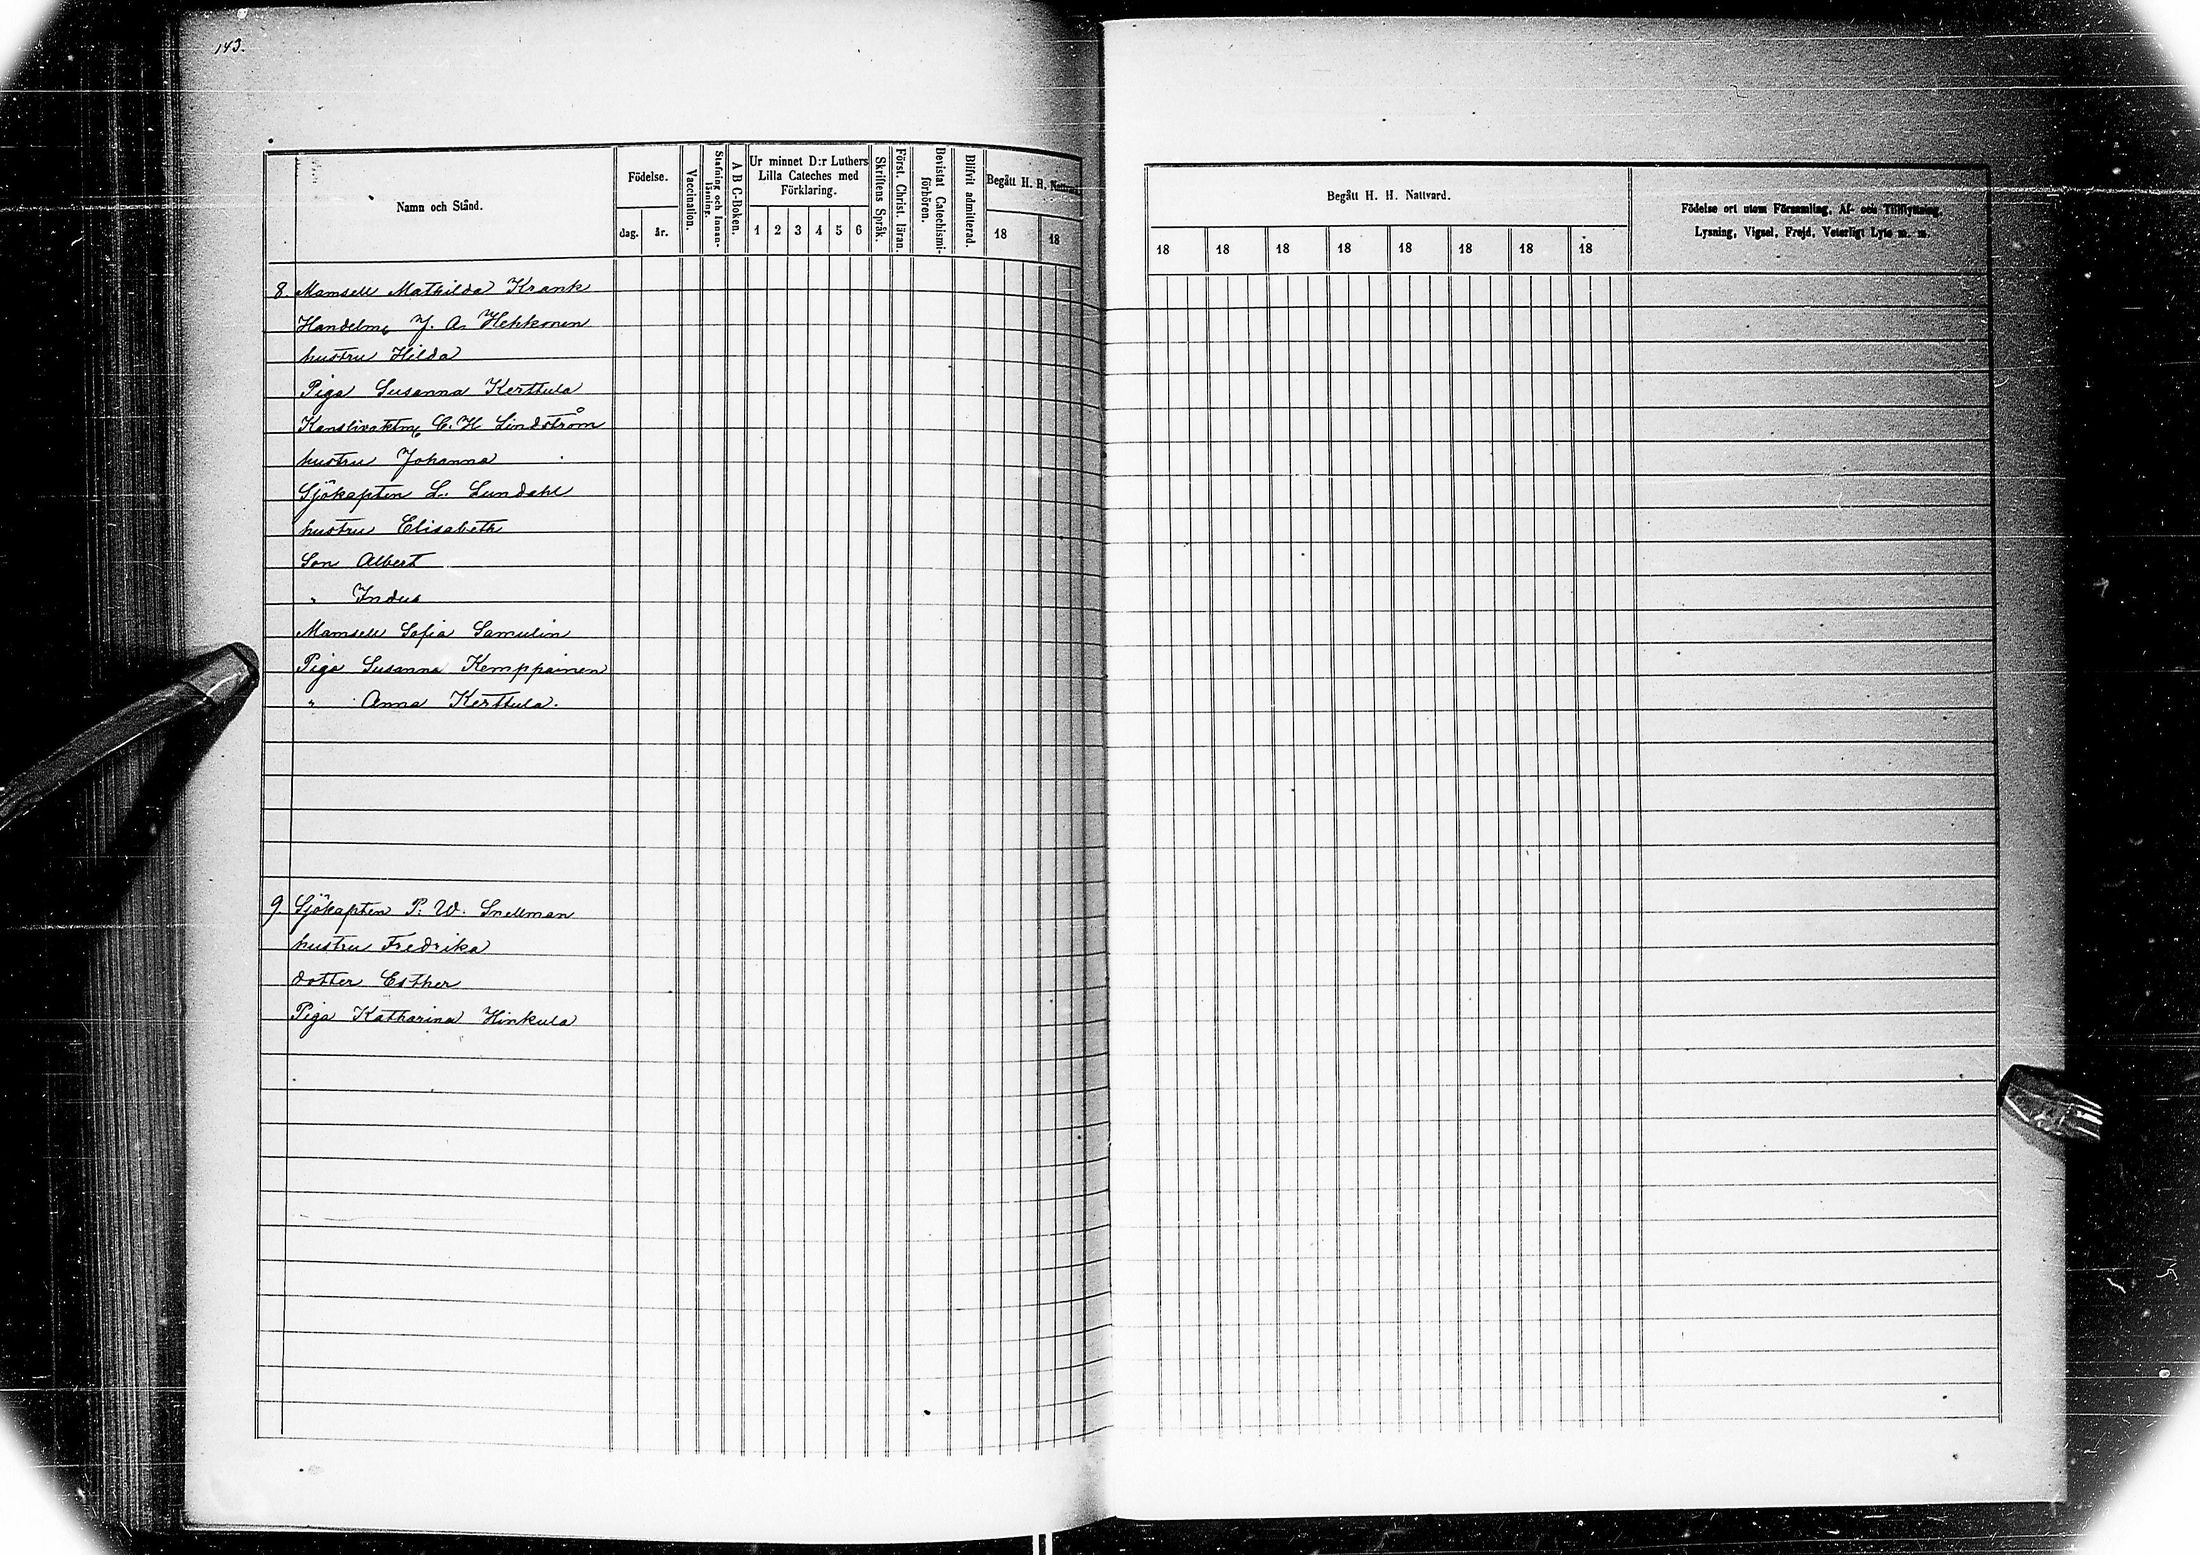 143.
Namn och Stånd.
Födelse.
dag. år.
Vaccination.
Stafning och Innan-
läsning.
A B C-Boken.
Ur minnet D:r Luthers
Lilla Cateches med
Förklaring.
1 2 3 4 5 6
Skriftens Språk.
Först. Christ. läran.
Bevistat Catechismi-
förhören.
Blifvit admitterad.
Begått H. H. Nattvard.
18 18
Begått H. H. Nattvard.
18 18 18 18 18 18 18 18
Födelse ort utom Församling, Af- och Tillflyttning,
Lysning, Vigsel, Frejd, Veterligt Lyte m. m.
8. Mamsell Mathilda Krank
Handelsm. J. A. Hekkonen
hustru Hilda
Piga Susanna Kerttula
Kanslivaktm. C. H Lindström
hustru Johanna
Sjökapten L. Lundahl
hustru Elisabeth
Son Albert
" Indus
Mamsell Sofia Samulin
Piga Susanna Kemppainen
" Anna Kerttula.
9. Sjökapten P. W. Snellman
hustru Fredrika
dotter Esther
Piga Katharina Hinkula